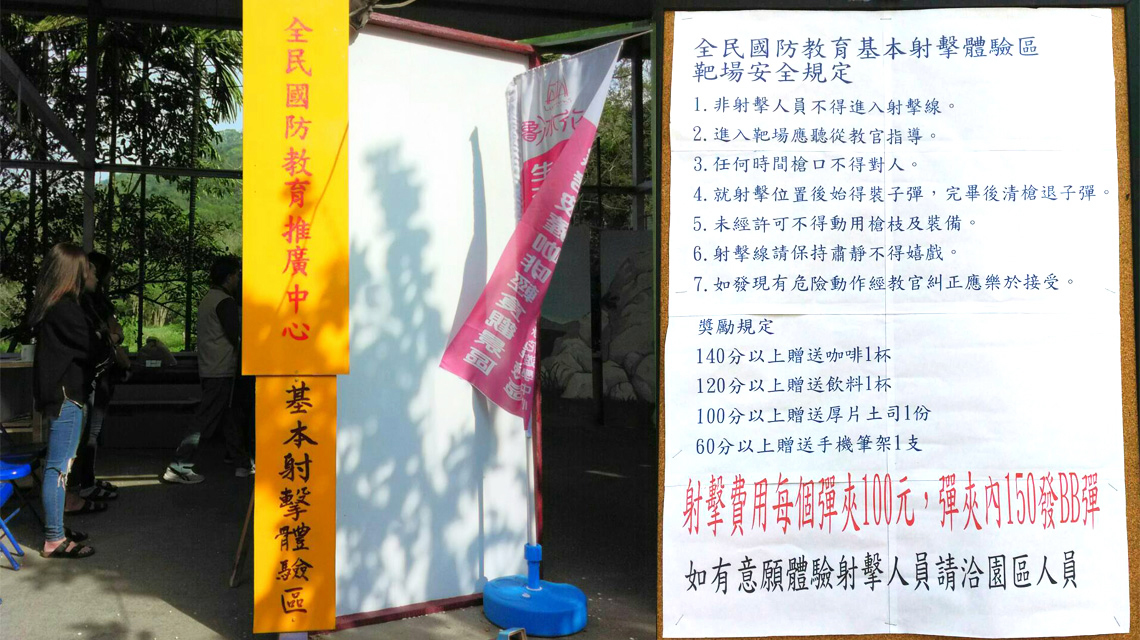 全民國防教育推廣中心
基本射擊體驗區
全民國防教育基本射擊體驗區
靶場安全規定
1.非射擊人員不得進入射擊線。
2.進入靶場應聽從教官指導。
3.任何時間槍口不得對人。
4.就射擊位置後始得裝子彈，完畢後清槍退子彈。
5.未經許可不得動用槍枝及裝備。
6.射擊線請保持肅靜不得嬉戲。
7.如發現有危險動作經教官糾正應樂於接受。
獎勵規定
140分以上贈送咖啡1杯
120分以上贈送飲料1杯
100分以上贈送厚片土司1份
60分以上贈送手機筆架1支
射擊費用每個彈夾100元，彈夾內150發BB彈
如有意願體驗射擊人員請洽園區人員